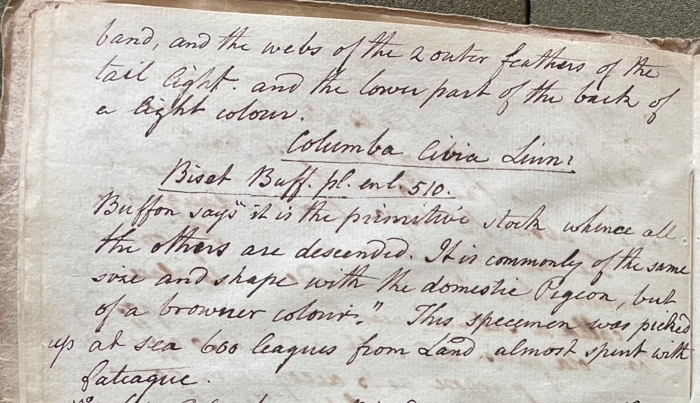 band, and the webs of the 2 outer feathers of the
tail light. and the lower part of the back of
a light colour.
Columba Livia Linn:
Biset Buff. pl. enl. 510.
Buffon says "it is the primitive stock whence all
the others are descended. It is commonly of the same
size and shape with the domestic Pigeon, but
of a browner colour." This specimen was picked
up at sea 600 leagues from Land almost spent with
fateague.